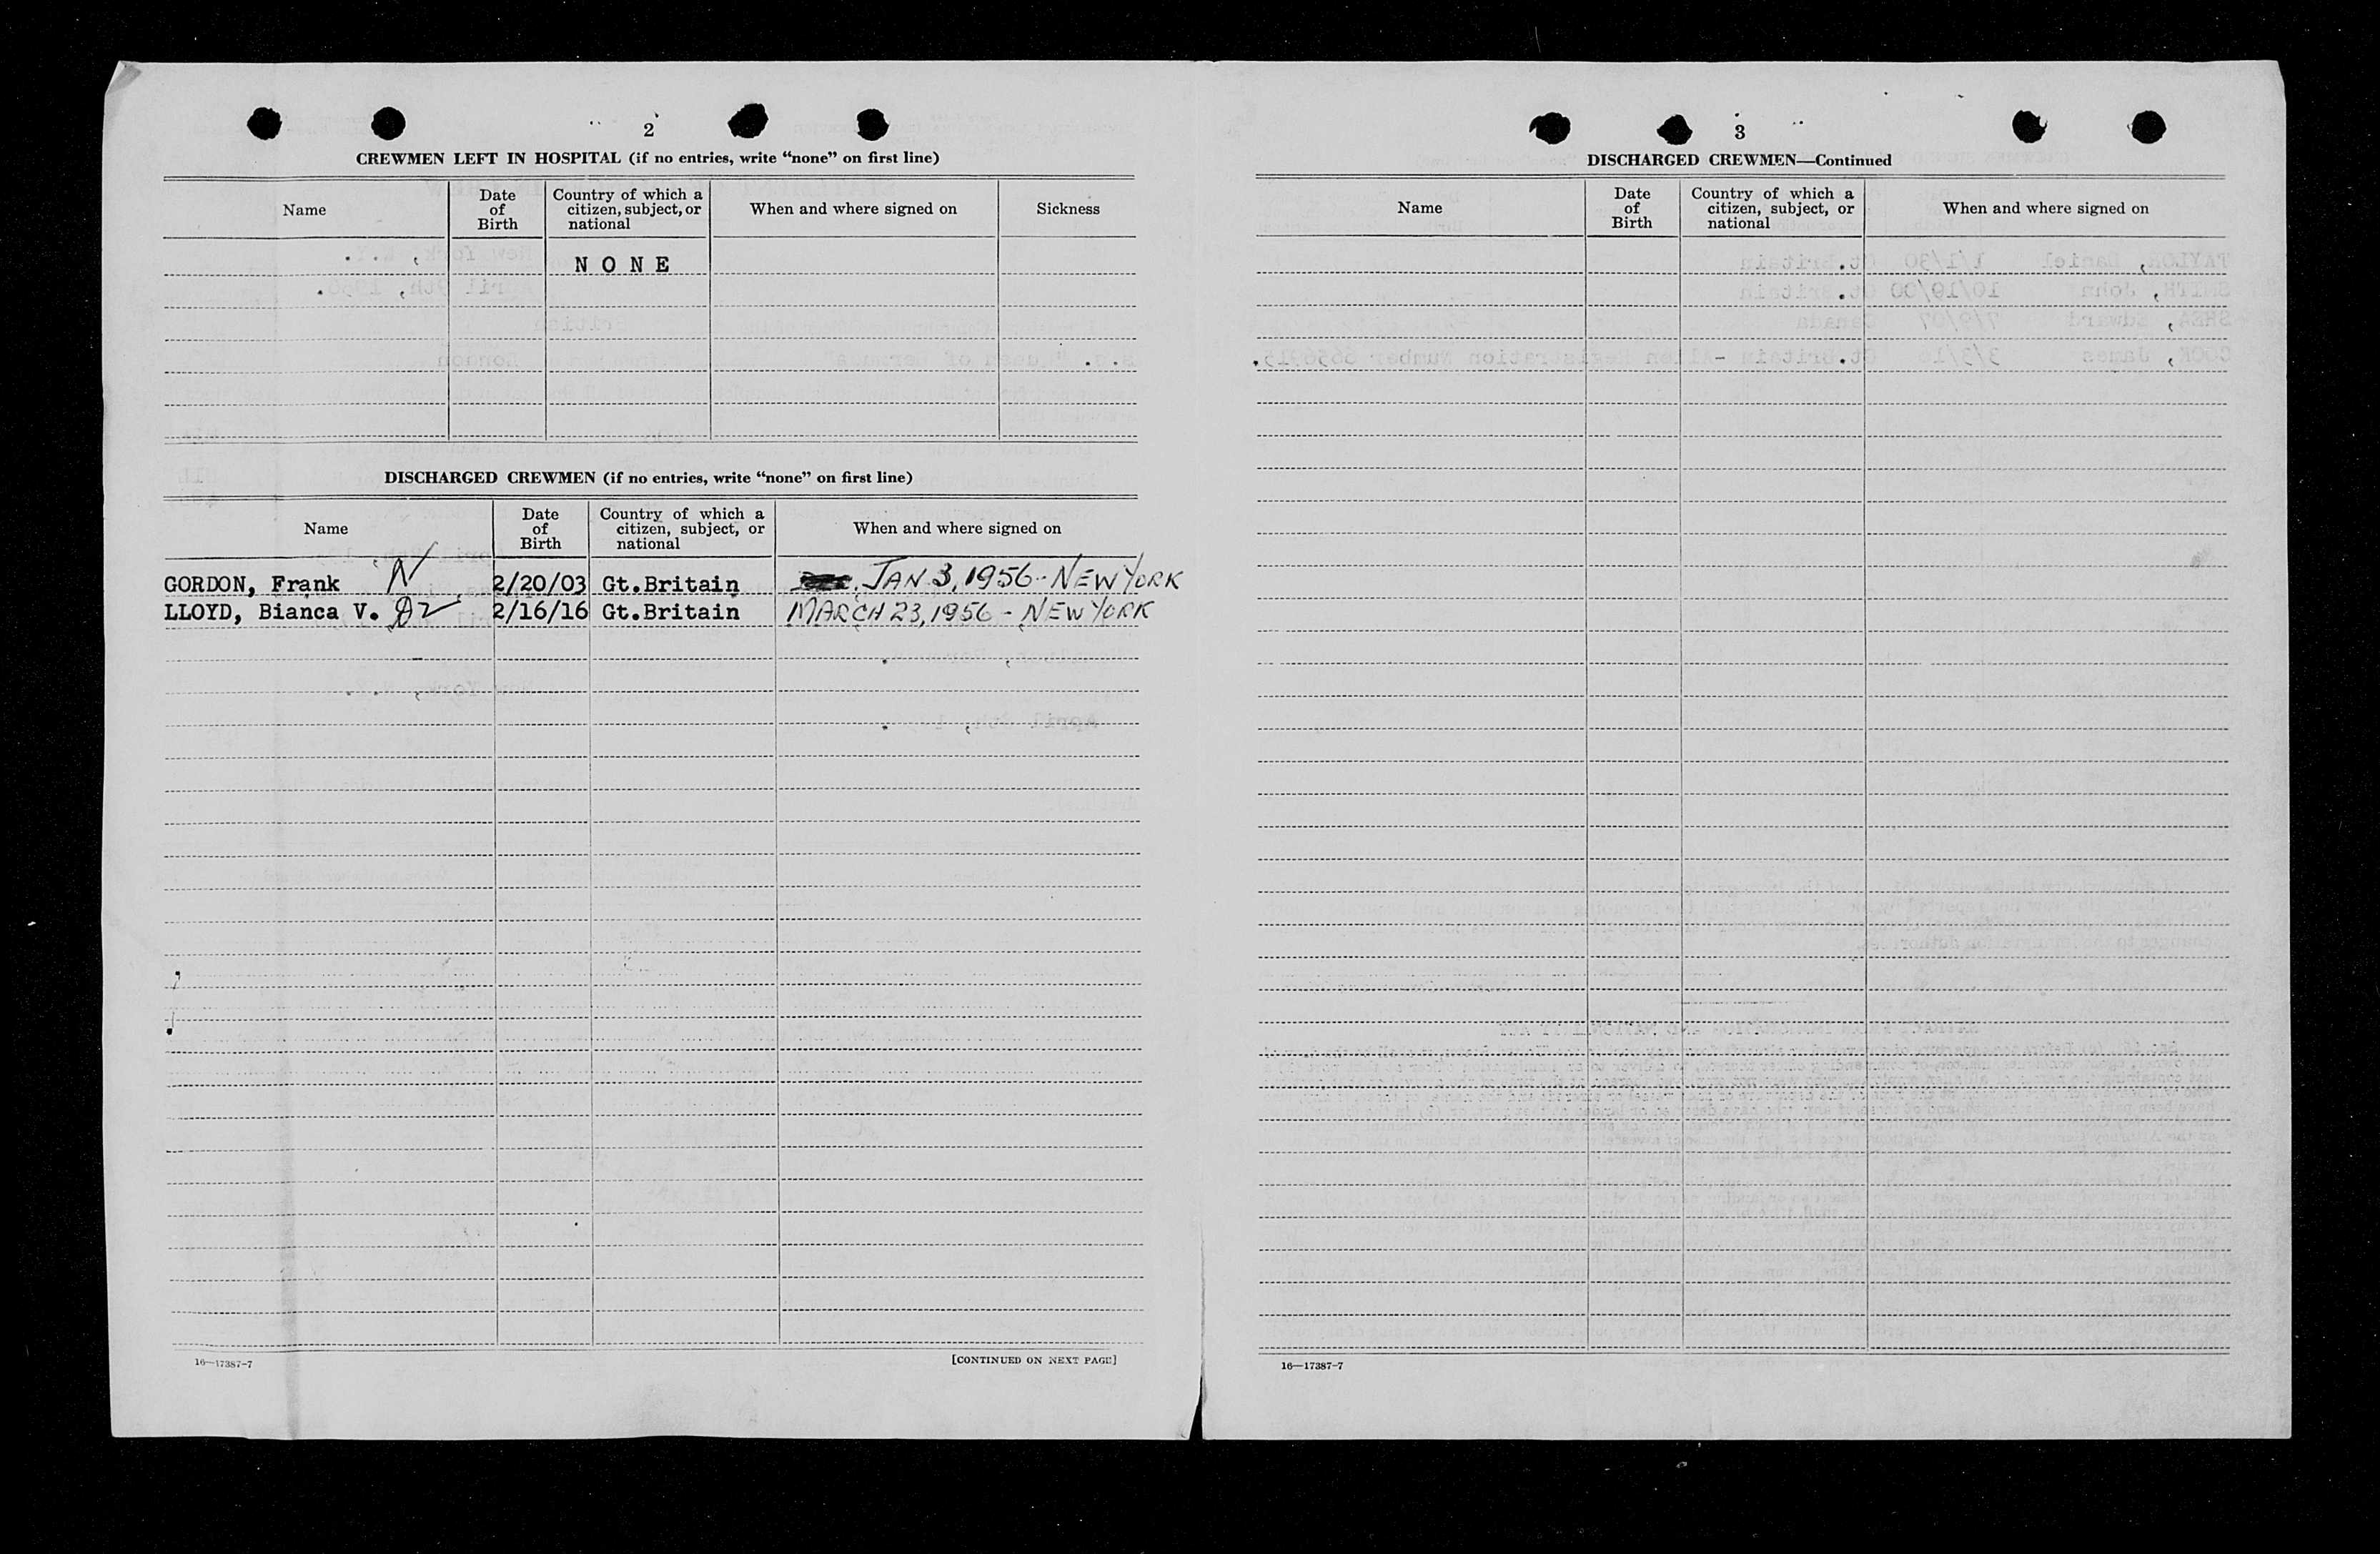 2
CREWMEN LEFT IN HOSPITAL (if no entries, write “none” on first line)
Name
Date of Birth
Country of which a citizen, subject, or national
When and where signed on
Sickness
N O N E
DISCHARGED CREWMEN (if no entries, write “none” on first line)
Name
Date of Birth
Country of which a citizen, subject, or national
When and where signed on
GORDON, Frank N 2/20/03 Gt.Britain JAN 3, 1956 - NEW YORK
LLOYD, Bianca V. 2/16/16 Gt.Britain MARCH 23, 1956 - NEW YORK
16—17387-7
[CONTINUED ON NEXT PAGE]
3
DISCHARGED CREWMEN—Continued
Name
Date of Birth
Country of which a citizen, subject, or national
When and where signed on
16—17387-7